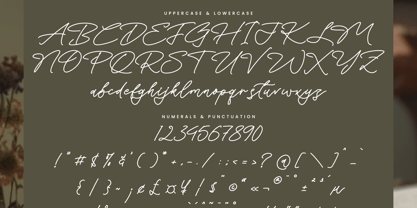 UPPERCASE & LOWERCASE
ABCDEFGHIJKLM
NOPQRSTUVWXYZ
abcdefghijklmnopqrstuvwxyz
NUMERALS & PUNCTUATION
1234567890
! " # $ % & ' ( ) * + , - . / : ; < = > ? @ [ \ ] ^ _
{ | } ~ ¡ ¢ £ ¤ ¥ ¦ § ¨ © ª « ¬ ® ¯ ° ± ² ³ ´ µ